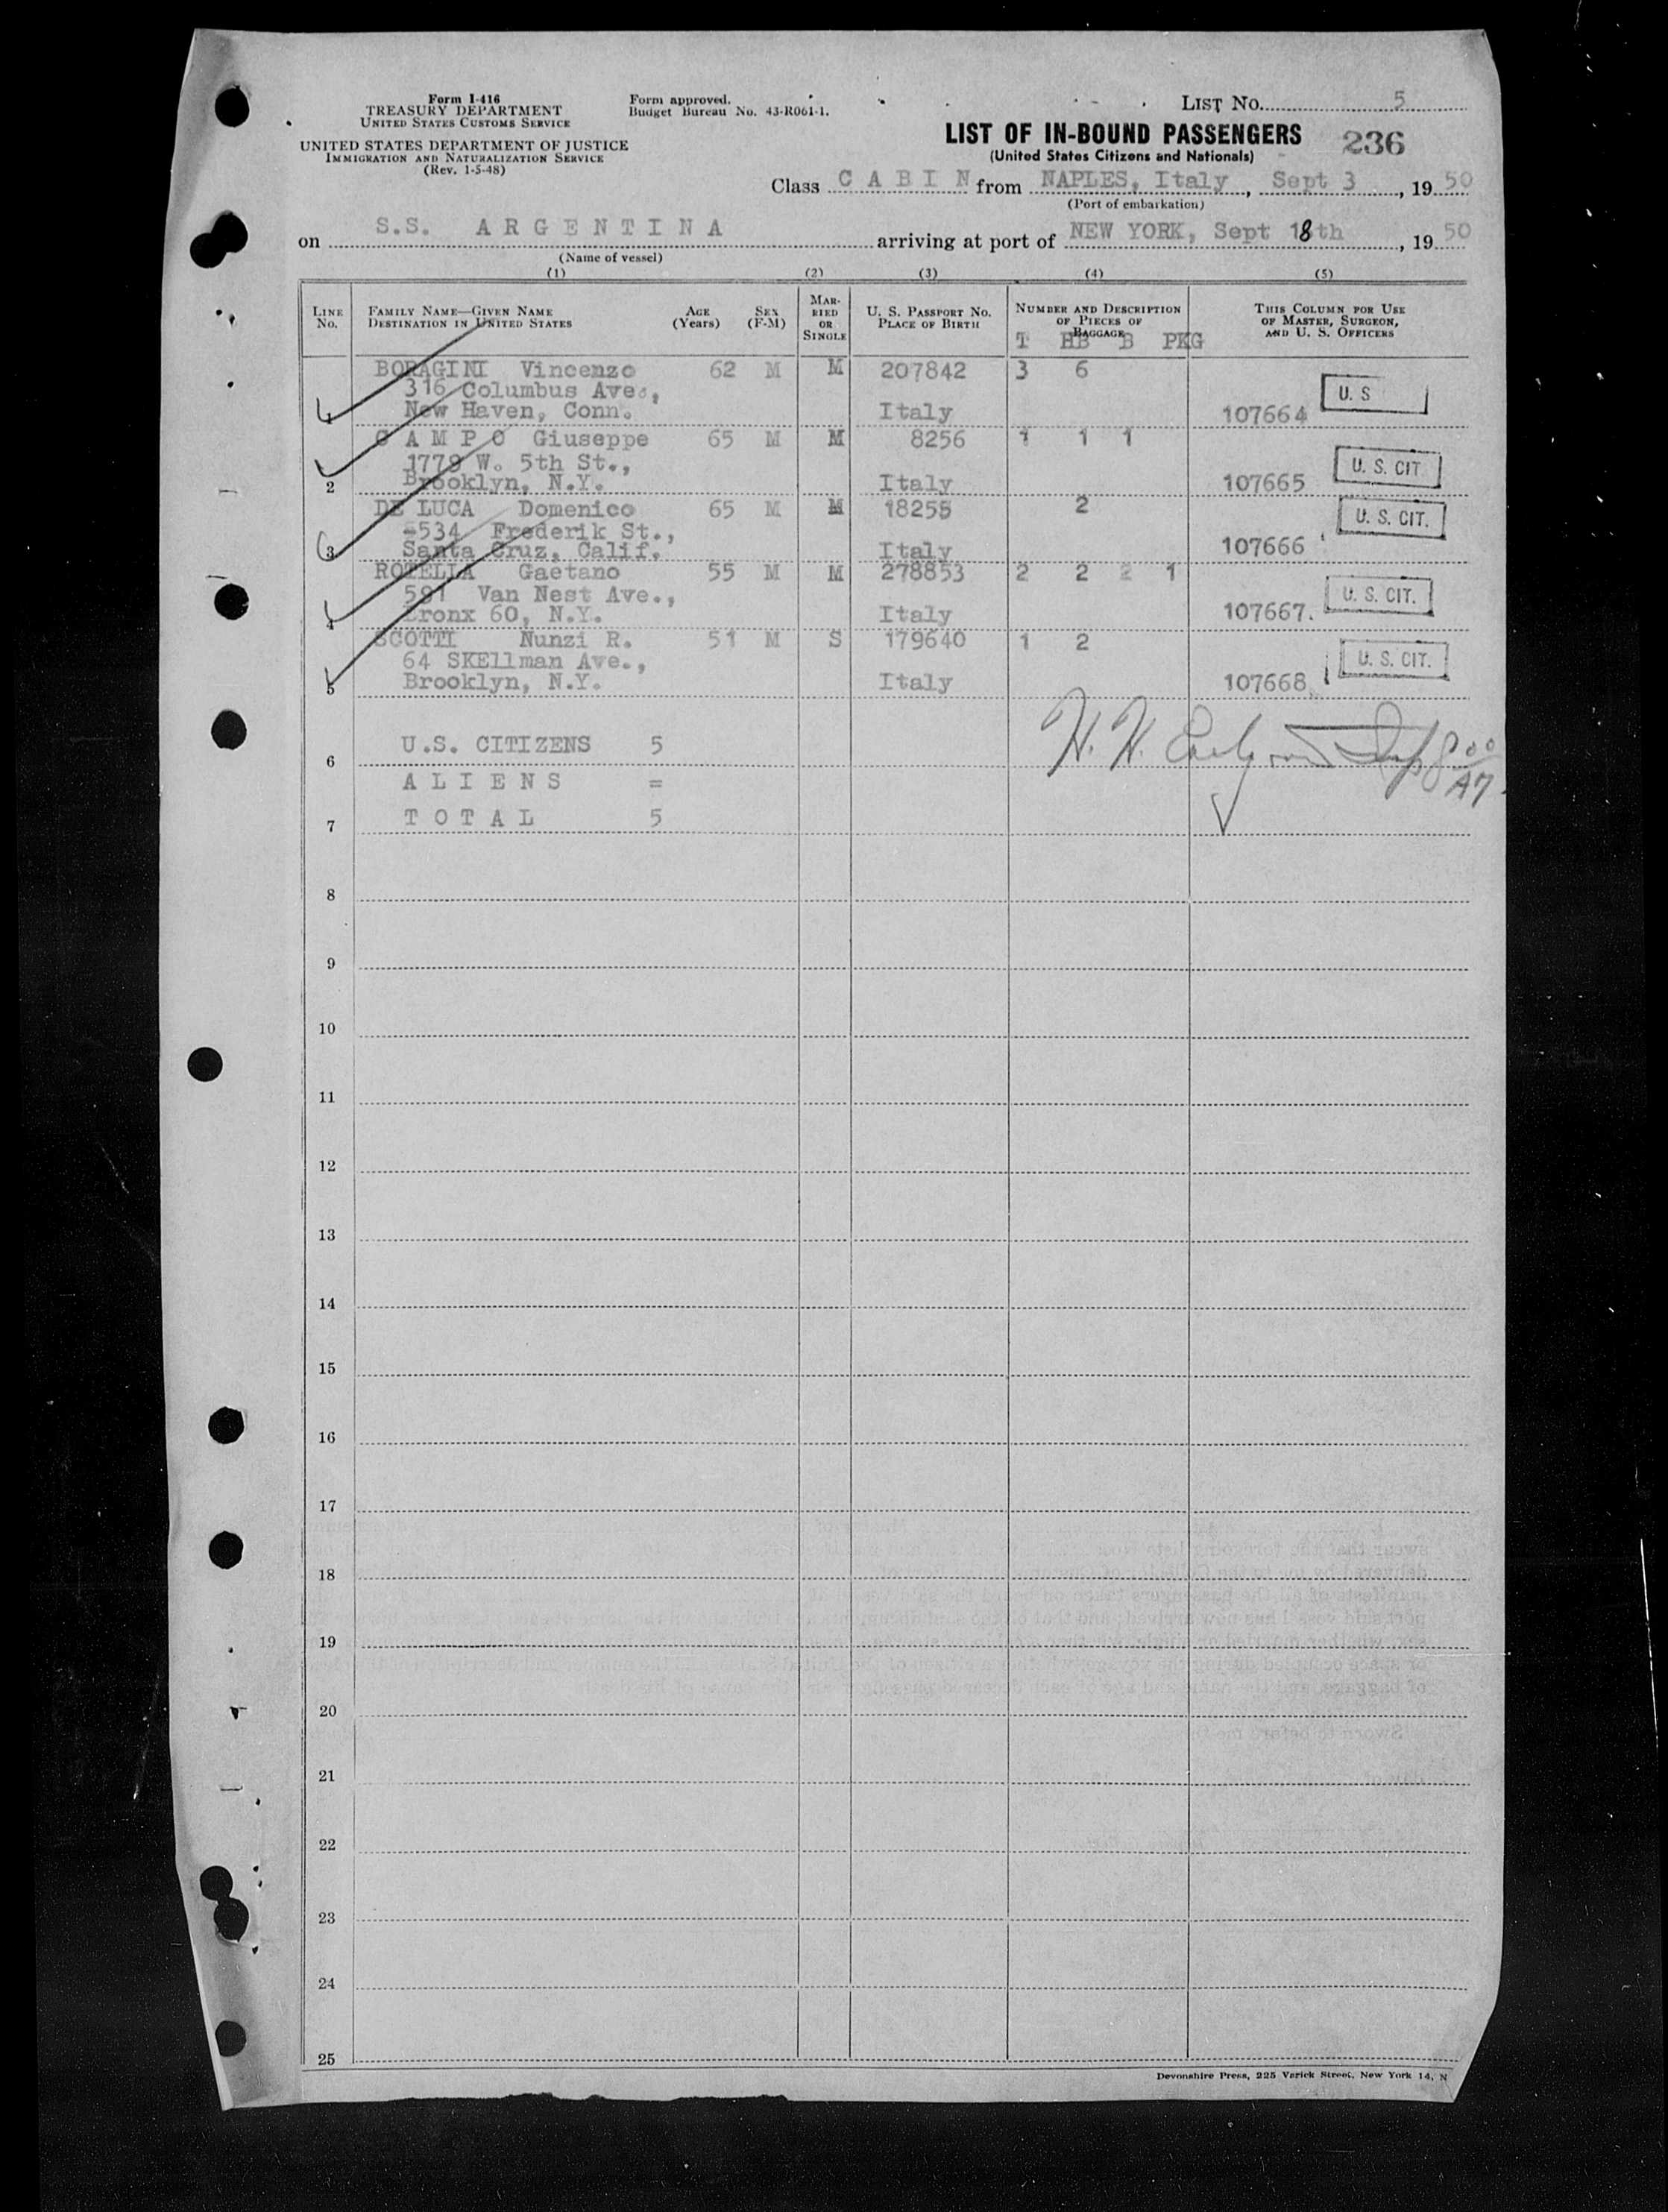 Form I-416
TREASURY DEPARTMENT
UNITED STATES CUSTOMS SERVICE
UNITED STATES DEPARTMENT OF JUSTICE
IMMIGRATION AND NATURALIZATION SERVICE
(Rev. 1-5-48)
Form approved.
Budget Bureau No. 43-R061-1.
LIST No. 5
LIST OF IN-BOUND PASSENGERS 236
(United States Citizens and Nationals)
Class C A B I N from NAPLES, Italy, Sept 3, 19 50
(Port of embarkation)
on S.S. A R G E N T I N A arriving at port of NEW YORK, Sept 18th, 19 50
(Name of vessel)
(1) (2) (3) (4) (5)
LINE No. FAMILY NAME—GIVEN NAME DESTINATION IN UNITED STATES AGE (Years) SEX (F-M) MARRIED OR SINGLE U. S. PASSPORT NO. PLACE OF BIRTH NUMBER AND DESCRIPTION OF PIECES OF BAGGAGE THIS COLUMN FOR USE OF MASTER, SURGEON, AND U. S. OFFICERS
T HB B PKG
BORAGINI Vincenzo 62 M M 207842 3 6
316 Columbus Ave., U. S
1 New Haven, Conn. Italy 107664
C A M P O Giuseppe 65 M M 8256 1 1 1
1779 W. 5th St., U. S. CIT
2 Brooklyn, N.Y. Italy 107665
DE LUCA Domenico 65 M M 18255 2
534 Frederik St., U. S. CIT.
3 Santa Cruz, Calif. Italy 107666
ROTELLA Gaetano 55 M M 278853 2 2 2 1
591 Van Nest Ave., U. S. CIT.
4 Bronx 60, N.Y. Italy 107667.
SCOTTI Nunzi R. 51 M S 179640 1 2
64 SKEllman Ave., U. S. CIT.
5 Brooklyn, N.Y. Italy 107668
U.S. CITIZENS 5
6
A L I E N S =
T O T A L 5
7
8
9
10
11
12
13
14
15
16
17
18
19
20
21
22
23
24
25
Devonshire Press, 225 Varick Street, New York 14, N